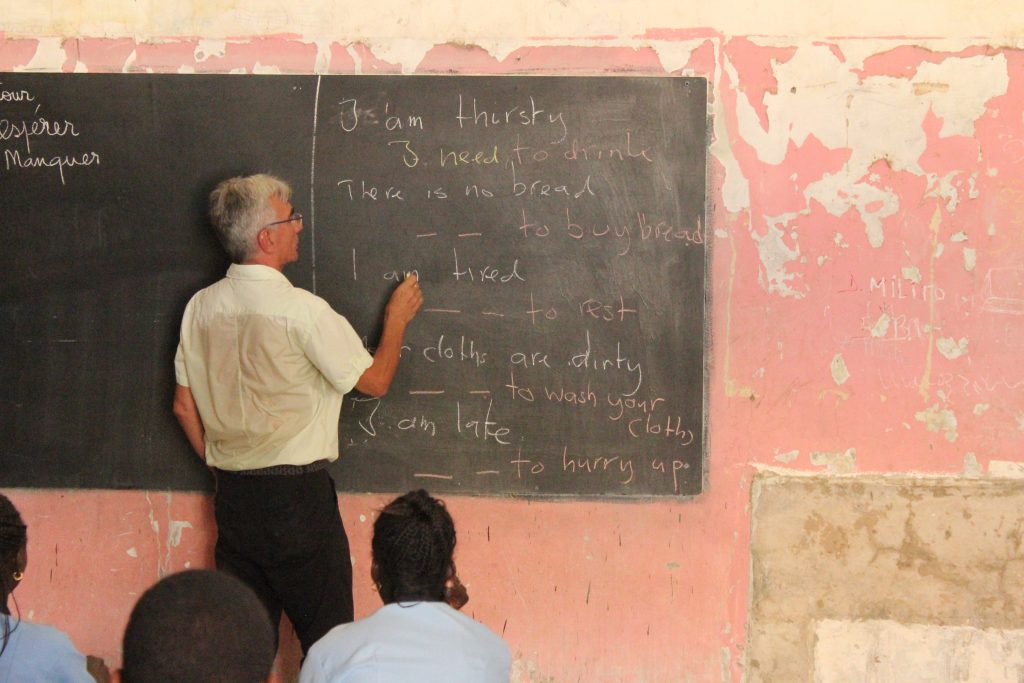 espérer
Manquer
I am thirsty
I need to drink
There is no bread
_ _ to buy bread
I am tired
_ _ to rest
cloths are dirty
_ _ to wash your
cloths
I am late
_ _ to hurry up
D. MiLiTO